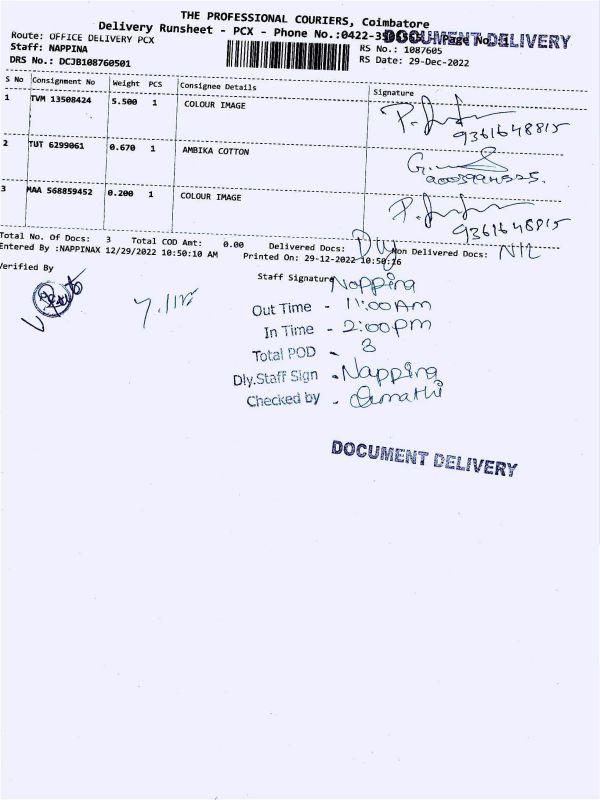 THE PROFESSIONAL COURIERS, Coimbatore
Delivery Runsheet - PCX - Phone No.:0422- Page No.
DOCUMENT DELIVERY
Route: OFFICE DELIVERY PCX
RS No.: 1087605
Staff: NAPPINA
RS Date: 29-Dec-2022
DRS No.: DCJB108760501
S No Consignment No Weight PCS Consignee Details Signature
1 TVM 13508424 5.500 1 COLOUR IMAGE
9361648815
2 TUT 6299061 0.670 1 AMBIKA COTTON
3 MAA 568859452 0.200 1 COLOUR IMAGE
9361648815
Total No. Of Docs: 3 Total COD Amt: 0.00 Delivered Docs: Non Delivered Docs: NIL
Entered By :NAPPINAX 12/29/2022 10:50:10 AM Printed On: 29-12-2022 10:50:16
Verified By
Staff Signature Nappina
Out Time - 11:00 Am
In Time - 2:00 pm
Total POD - 3
Dly.Staff Sign - Nappina
Checked by -
DOCUMENT DELIVERY